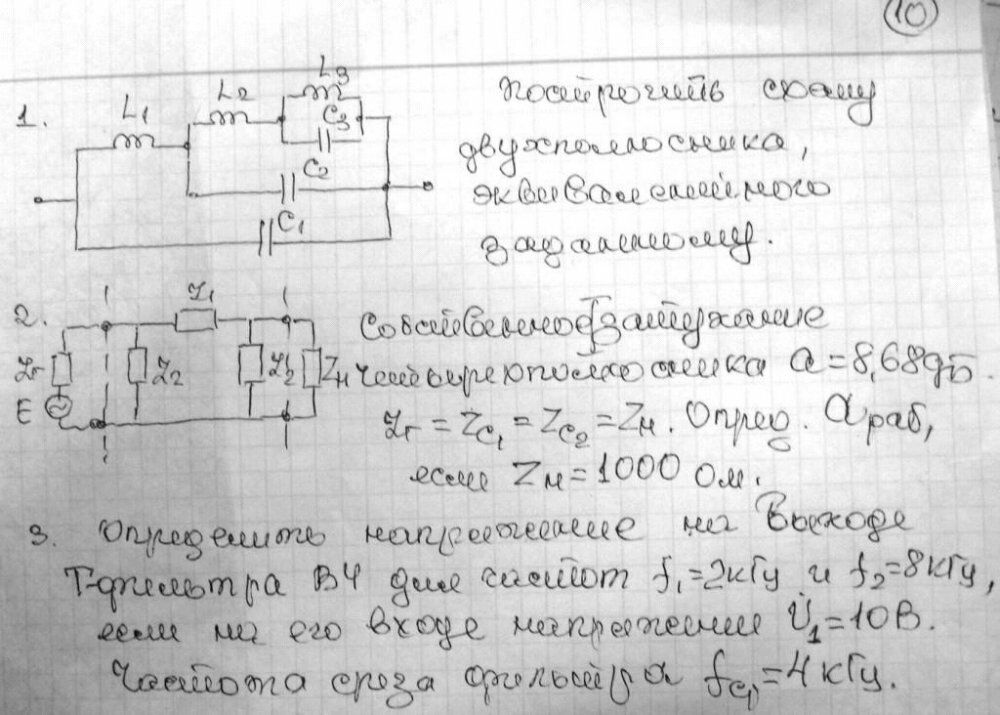 10
1. L₁ L₂ L₃ C₃ C₂ C₁
Построить схему
двухполюсника,
эквивалентного
заданному.
2. Zг E Z₂ Z₁ Z₂ Zн
Собственное затухание
четырехполюсника a = 8,68 дБ
Zг = Zc₁ = Zc₂ = Zн. Опред. aраб,
если Zн = 1000 Ом.
3. Определить напряжение на выходе
Т-фильтра ВЧ для частот f₁=2кГц и f₂=8кГц,
если на его входе напряжение U̇₁=10В.
Частота среза фильтра fc₁=4кГц.